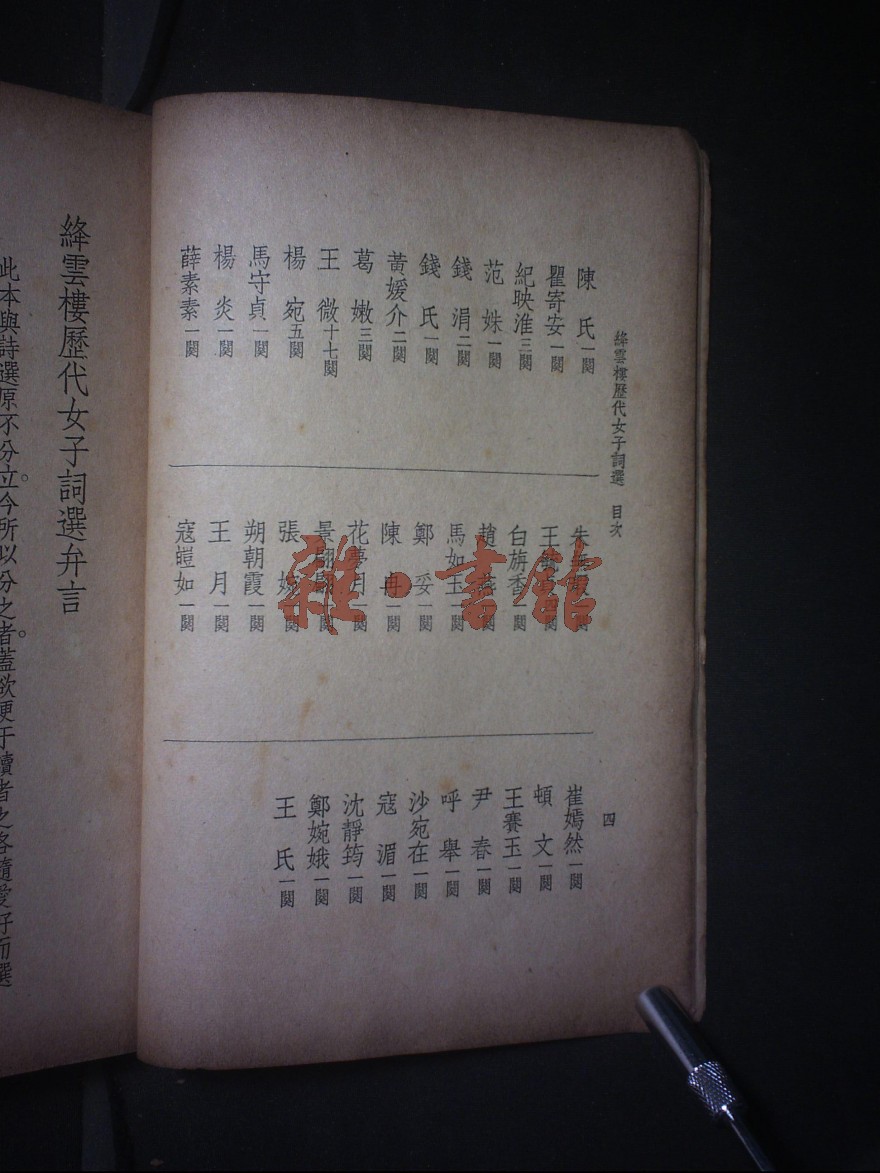 絳雲樓歷代女子詞選 目次
四
陳 氏一闋
瞿寄安一闋
紀映淮三闋
范 姝一闋
錢 涓二闋
錢 氏一闋
黃媛介二闋
葛 嫩三闋
王 微十七闋
楊 宛五闋
馬守貞一闋
楊 炎一闋
薛素素一闋
朱 闋
王 闋
白旃香一闋
趙 一闋
馬如玉一闋
鄭 妥一闋
陳 冉一闋
花夢月一闋
景翩翩一闋
張 婉一闋
朔朝霞一闋
王 月一闋
寇皚如一闋
崔嫣然一闋
頓 文一闋
王賽玉一闋
尹 春一闋
呼 舉一闋
沙宛在一闋
寇 湄一闋
沈靜筠一闋
鄭婉娥一闋
王 氏一闋
絳雲樓歷代女子詞選弁言
此本與詩選原不分立。今所以分之者。蓋欲便于讀者之各隨愛好而選
雜·書館